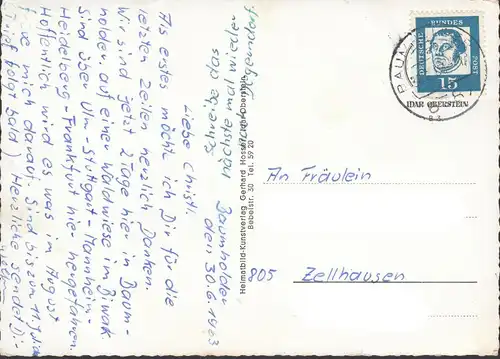 Baumholder
den 30.6.1963
Liebe Christl.
Als erstes möcht ich Dir für die
letzten Zeilen herzlich Danken.
Wir sind jetzt 2 Tage hier in Baum-
holder, auf einer Waldwiese im Biwak
Sind über Ulm-Stuttgart-Mannheim-
Heidelberg-Frankfurt hier hergefahren.
Hoffentlich wird es was im August
mich darauf. Sind bis zum 11 Juli
folgt bald) Herzliche sendet Dir
schreibe das
nächste mal wieder
Heimatbild-Kunstverlag Gerhard Hosser, Idar-Oberstein
Bebelstr. 30 Tel. 59 20
DEUTSCHE BUNDESPOST
15
IDAR OBERSTEIN
BAUM
An Fräulein
805 Zellhausen